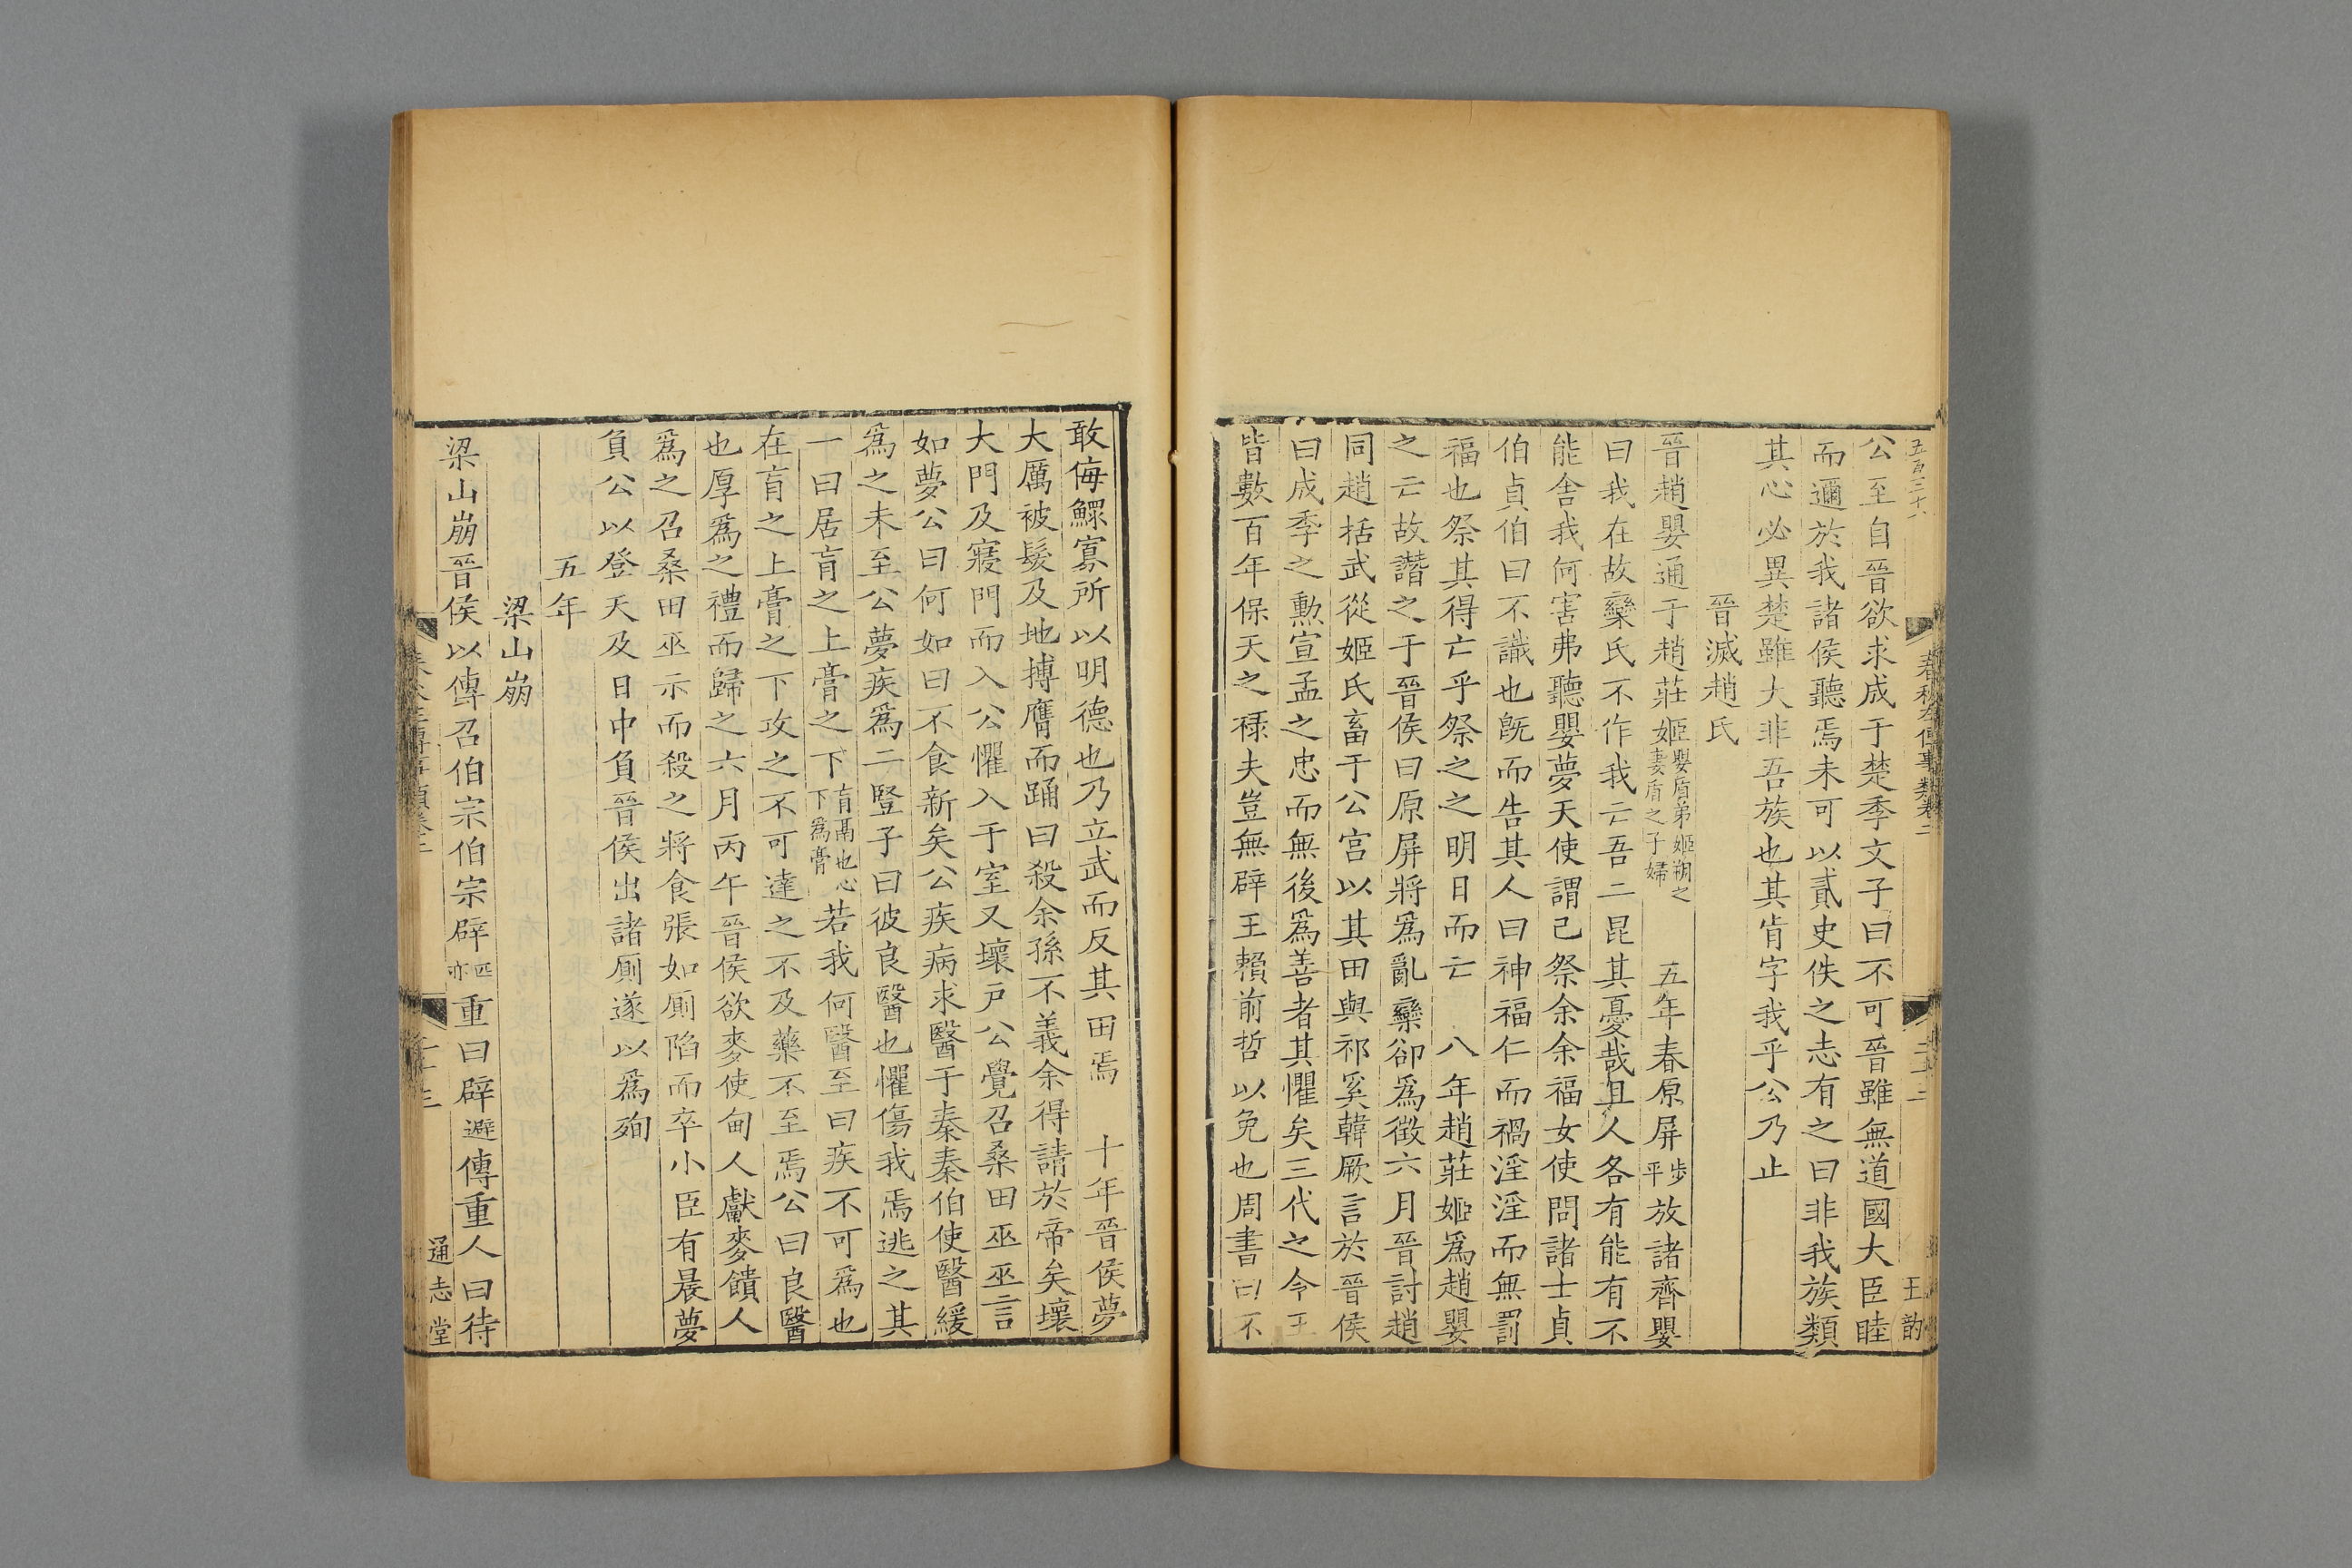 五百三十八
春秋左傳事類卷二
王
公至自晉欲求成于楚季文子曰不可晉雖無道國大臣睦
而邇於我諸侯聽焉未可以貳史佚之志有之曰非我族類
其心必異楚雖大非吾族也其肯字我乎公乃止
晉滅趙氏
晉趙嬰通于趙莊姬嬰盾弟姬朔之妻盾之子婦 五年春原屏步平放諸齊嬰
曰我在故欒氏不作我亡吾二昆其憂哉且人各有能有不
能舍我何害弗聽嬰夢天使謂己祭余余福女使問諸士貞
伯貞伯曰不識也旣而告其人曰神福仁而禍淫淫而無罰
福也祭其得亡乎祭之之明日而亡 八年趙莊姬爲趙嬰
之亡故譖之于晉侯曰原屏將爲亂欒卻爲徵六月晉討趙
同趙括武從姬氏畜于公宮以其田與祁奚韓厥言於晉侯
曰成季之勳宣孟之忠而無後爲善者其懼矣三代之令王
皆數百年保天之祿夫豈無辟王賴前哲以免也周書曰不
敢侮鰥寡所以明德也乃立武而反其田焉 十年晉侯夢
大厲被髮及地搏膺而踊曰殺余孫不義余得請於帝矣壞
大門及寢門而入公懼入于室又壞戶公覺召桑田巫巫言
如夢公曰何如曰不食新矣公疾病求醫于秦秦伯使醫緩
爲之未至公夢疾爲二豎子曰彼良醫也懼傷我焉逃之其
一曰居肓之上膏之下肓鬲也心下爲膏若我何醫至曰疾不可爲也
在肓之上膏之下攻之不可達之不及藥不至焉公曰良醫
也厚爲之禮而歸之六月丙午晉侯欲麥使甸人獻麥饋人
爲之召桑田巫示而殺之將食張如厠陷而卒小臣有晨夢
負公以登天及日中負晉侯出諸厠遂以爲殉
五年
梁山崩
梁山崩晉侯以傳召伯宗伯宗辟匹亦重曰辟避傳重人曰待
通志堂